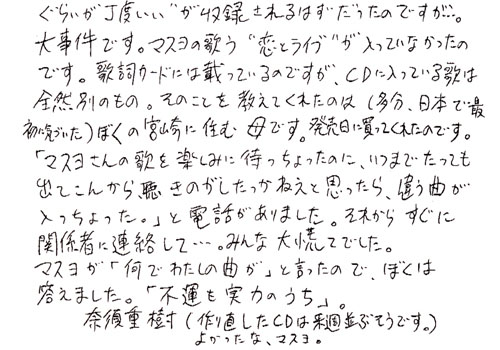 ぐらいが丁度いい"が収録されるはずだったのですが…。
大事件です。マスヨの歌う"恋とライブ"が入っていなかったの
です。歌詞カードには載っているのですが、CDに入っている歌は
全然別のもの。そのことを教えてくれたのは(多分、日本で最
初に気づいた)ぼくの宮崎に住む母です。発売日に買ってくれたのです。
「マスヨさんの歌を楽しみに待っちょったのに、いつまでたっても
出てこんから、聴きのがしたっかねえと思ったら、違う曲が
入っちょった。」と電話がありました。それからすぐに
関係者に連絡して…。みんな大慌てでした。
マスヨが「何でわたしの曲が」と言ったので、ぼくは
答えました。「不運も実力のうち」。
奈須重樹(作り直したCDは来週並ぶそうです。)
よかったな、マスヨ。